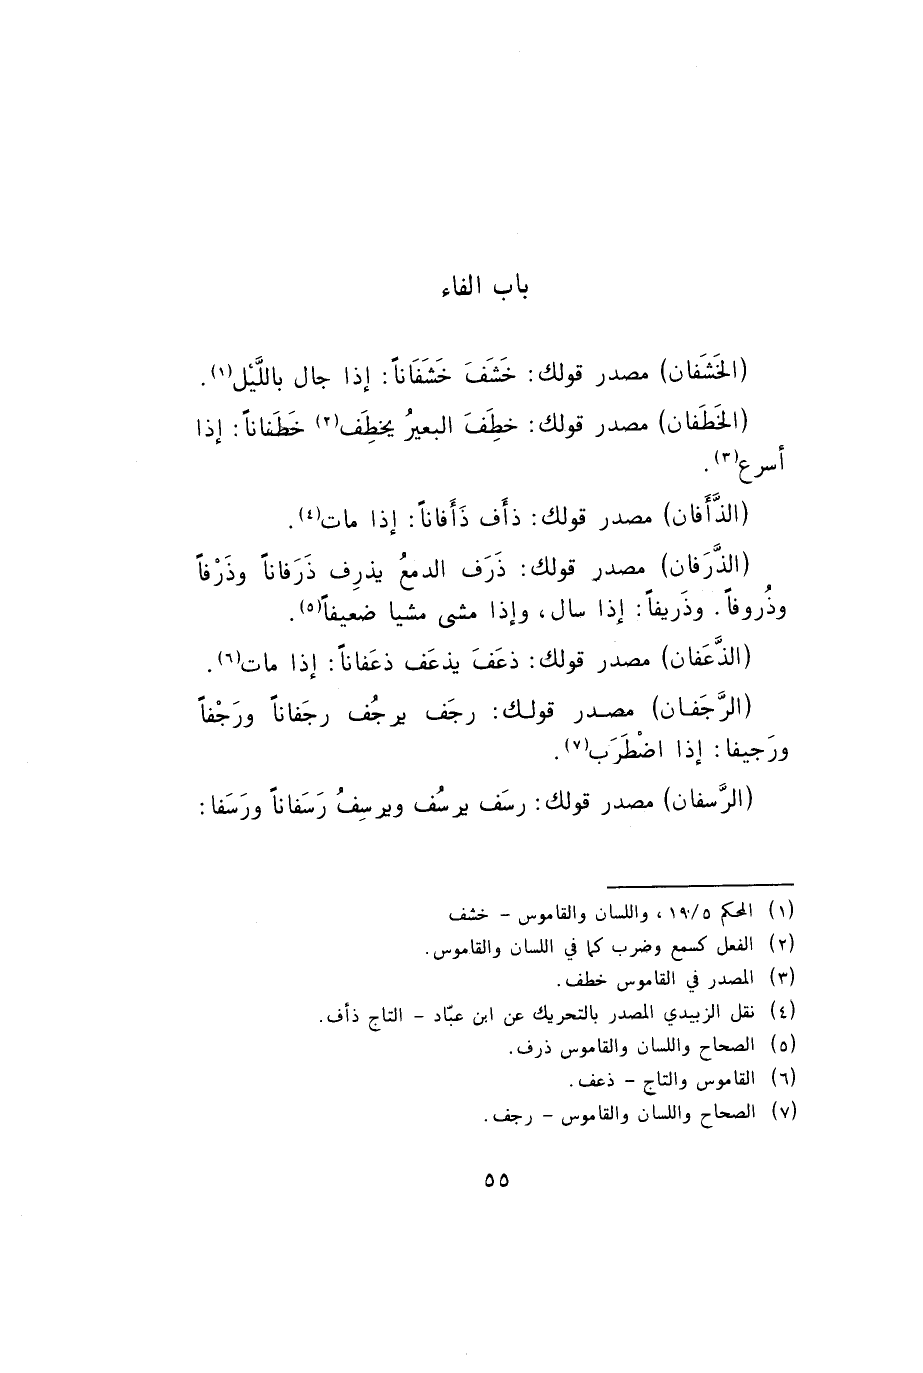 باب الفاء
(الخَشَفان) مصدر قولك: خَشَفَ خَشَفَاناً: إذا جال باللَّيْل(١).
(الخَطَفان) مصدر قولك: خطِفَ البعيرُ يخطِف(٢) خَطَفاناً: إذا
أسرع(٣).
(الذَّأَفان) مصدر قولك: ذأَف ذَأَفاناً: إذا مات(٤).
(الذَّرَفان) مصدر قولك: ذَرَف الدمعُ يذرِف ذَرَفاناً وذَرْفاً
وذُروفاً. وذَريفاً: إذا سال، وإذا مشى مشيا ضعيفاً(٥).
(الذَّعَفان) مصدر قولك: ذعَفَ يذعَف ذعَفاناً: إذا مات(٦).
(الرَّجَفان) مصدر قولك: رجَف يرجُف رجَفاناً ورَجْفاً
ورَجيفا: إذا اضْطَرَب(٧).
(الرَّسفان) مصدر قولك: رسَف يرسُف ويرسِفُ رَسَفاناً ورَسَفا:
(١) المحكم ١٩/٥، واللسان والقاموس - خشف
(٢) الفعل كسمع وضرب كما في اللسان والقاموس.
(٣) المصدر في القاموس خطف.
(٤) نقل الزبيدي المصدر بالتحريك عن ابن عبّاد - التاج ذأف.
(٥) الصحاح واللسان والقاموس ذرف.
(٦) القاموس والتاج - ذعف.
(٧) الصحاح واللسان والقاموس - رجف.
٥٥